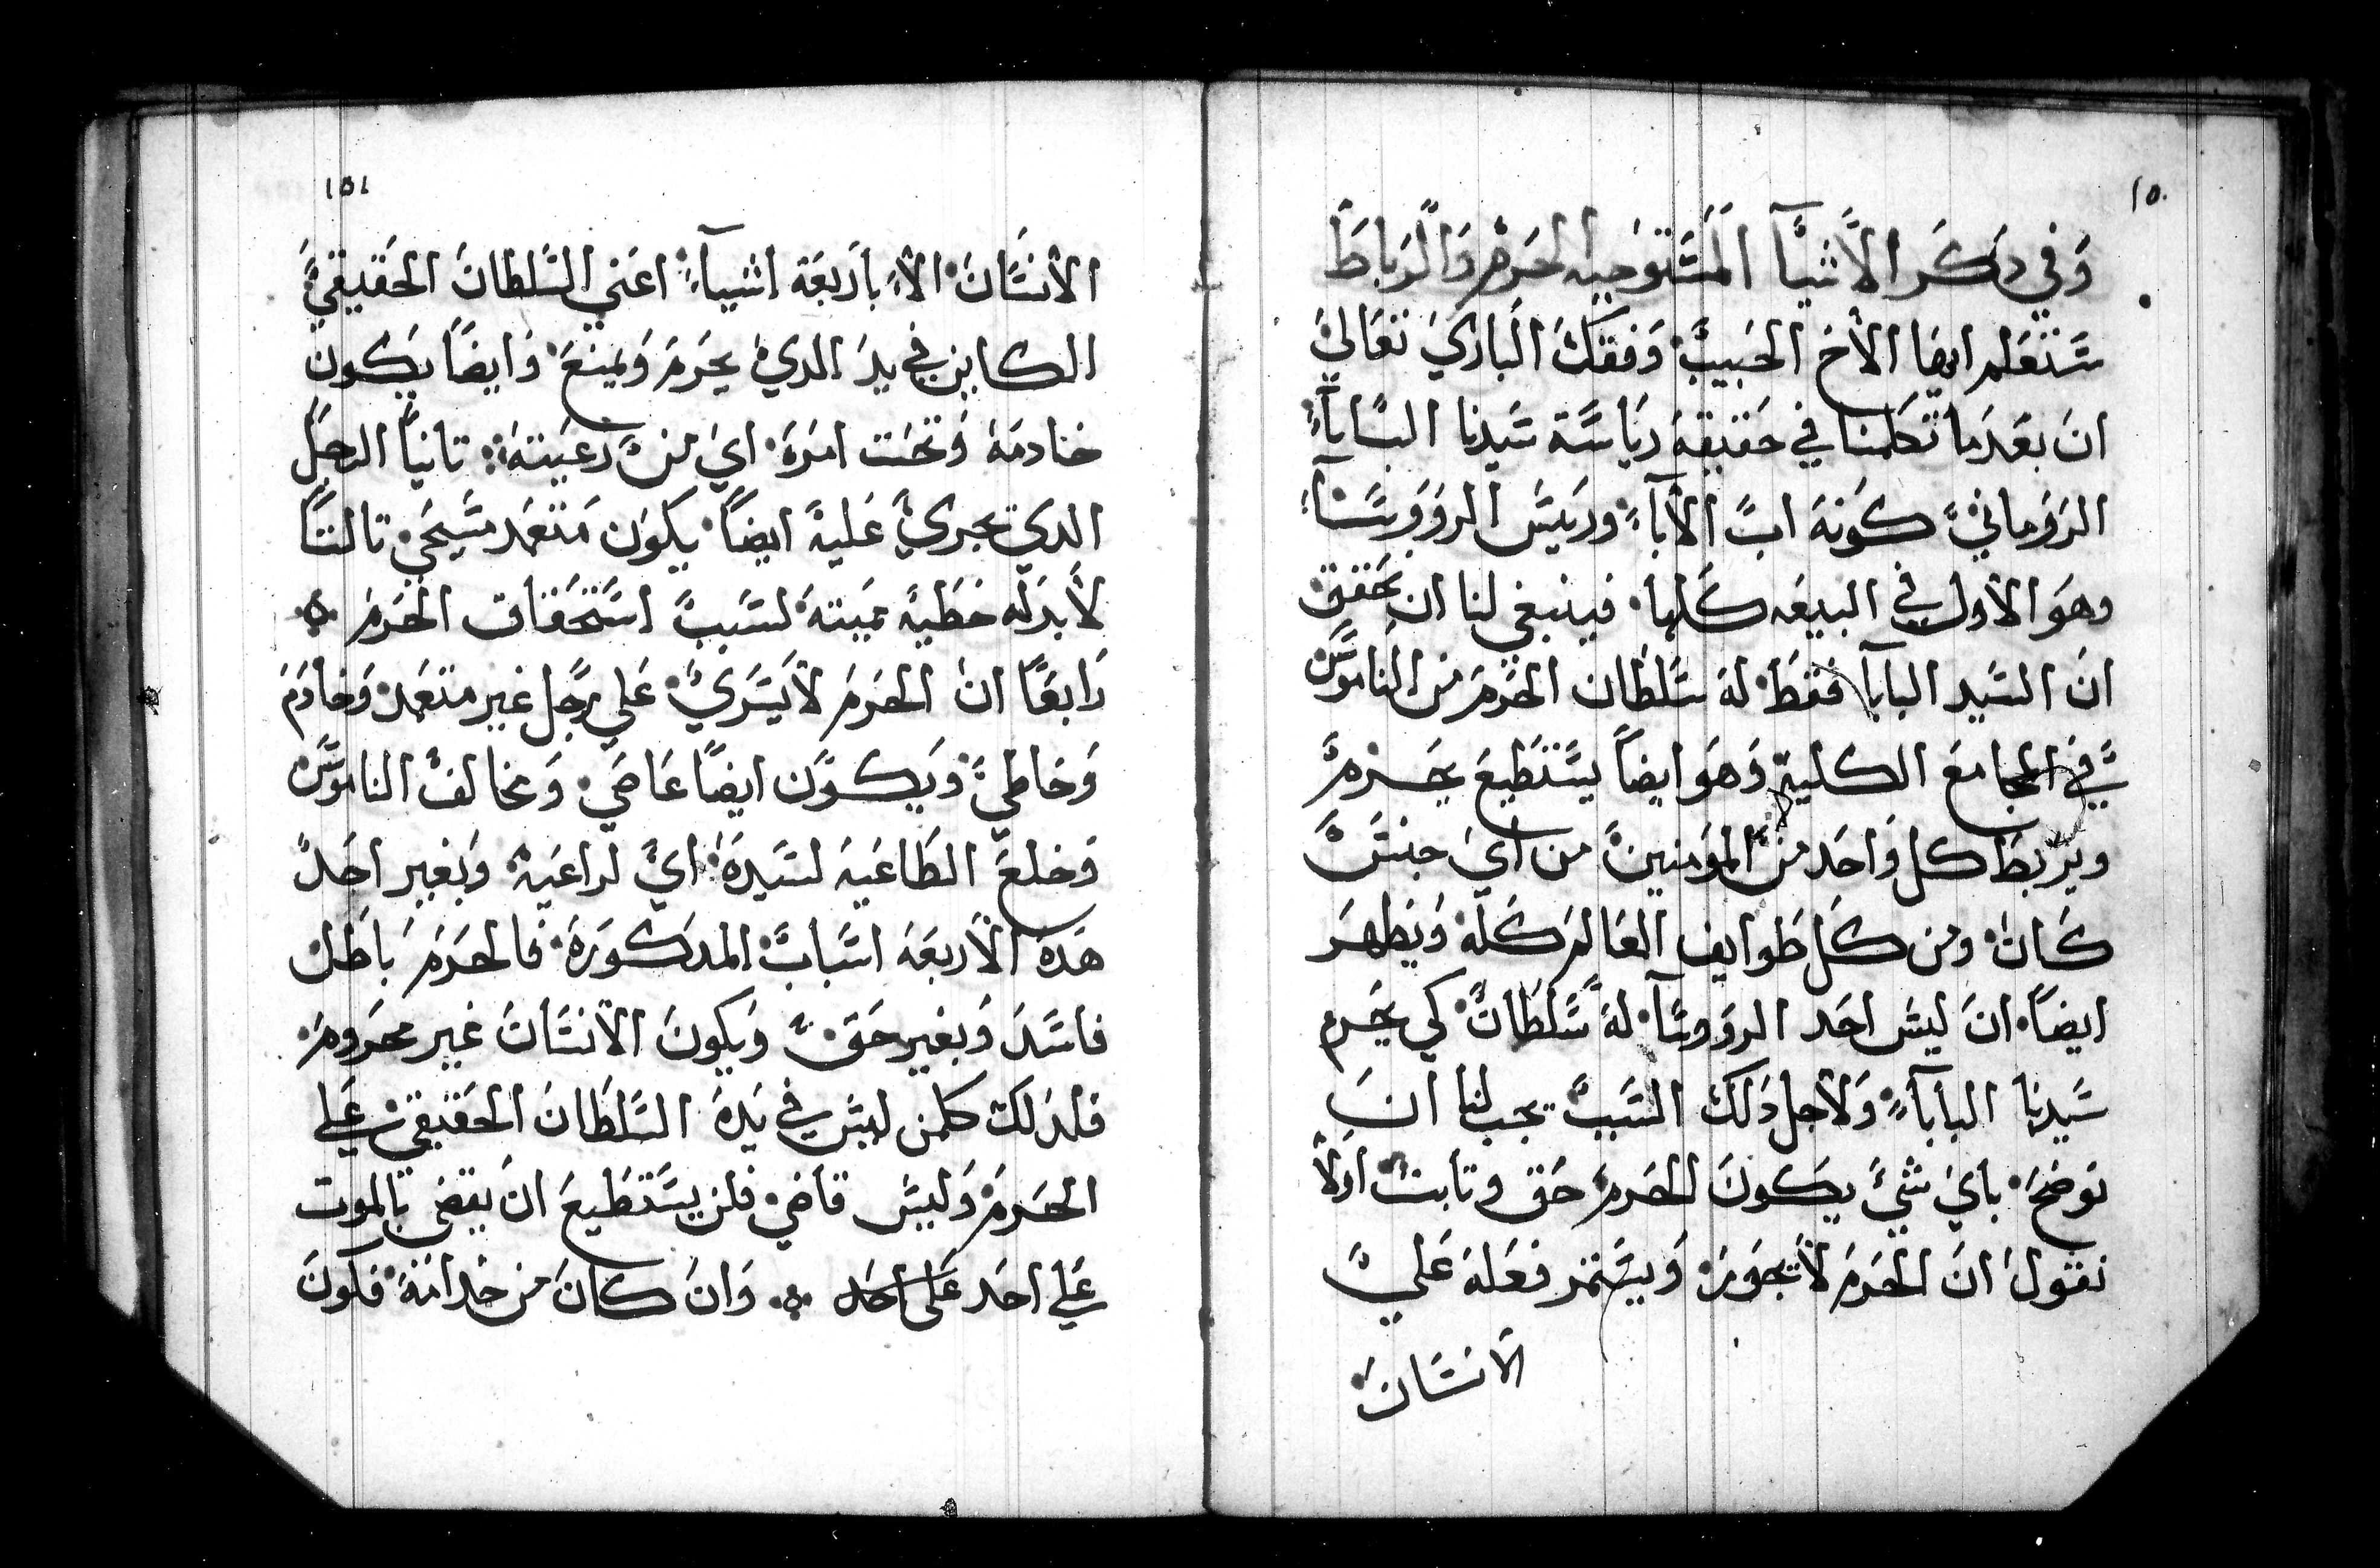 ١٥٠
وفي ذكر الاشيآ المستوجبه الحرم والرباط
ستعلم ايها الأخ الحبيب وفقك الباري تعالي
ان بعدما تكلمنا في حقيقة رياسة سيدنا الباباء
الروماني كونه اب الأباء وريس الرووسآء
وهو الأول في البيعه كلها فينبغي لنا ان نحقق
ان السيد البابا فقط له سلطان الحرم من الناموس
في المجامع الكلية وهو ايضاً يستطيع يحرم
ويربط كل واحد من المومنين من اي جنس
كان ومن كل طوايف العالم كله ويظهر
ايضاً ان ليس احد الرووسآ له سلطان كي يحرم
سيدنا البابآء ولأجل دلك السبب يجب لنا ان
نوضح باي شيء يكون الحرم حق وتابت اولاً
نقول ان الحرم لا يجوز ويستمر فعله علي
الانسان
١٥١
الأنسان الأ باربعة اشيآء اعني السلطان الحقيقي
الكاين في يد الدي يحرم ويمنع وايضاً يكون
خادمه وتحت امره اي من رعيته تانياً الرجل
الدي يجري عليه ايضاً يكون متعمد مسيحي تالتاً
لأبد له خطية مميته لسبب استحقاق الحرم
رابعاً ان الحرم لأيسري علي رجل غير متعمد وخادم
وخاطي ويكون ايضاً عاصي ومخالف الناموس
وخلع الطاعيه لسيده اي لراعيه وبغير احد
هده الأربعه اسباب المدكورة فالحرم باطل
فاسد وبغير حق ويكون الأنسان غير محروم
فلدلك كلمن ليس في يده السلطان الحقيقي علي
الحرم وليس قاضي فلن يستطيع ان يقضي بالموت
علي احد على احد وان كان من خدامه فكون